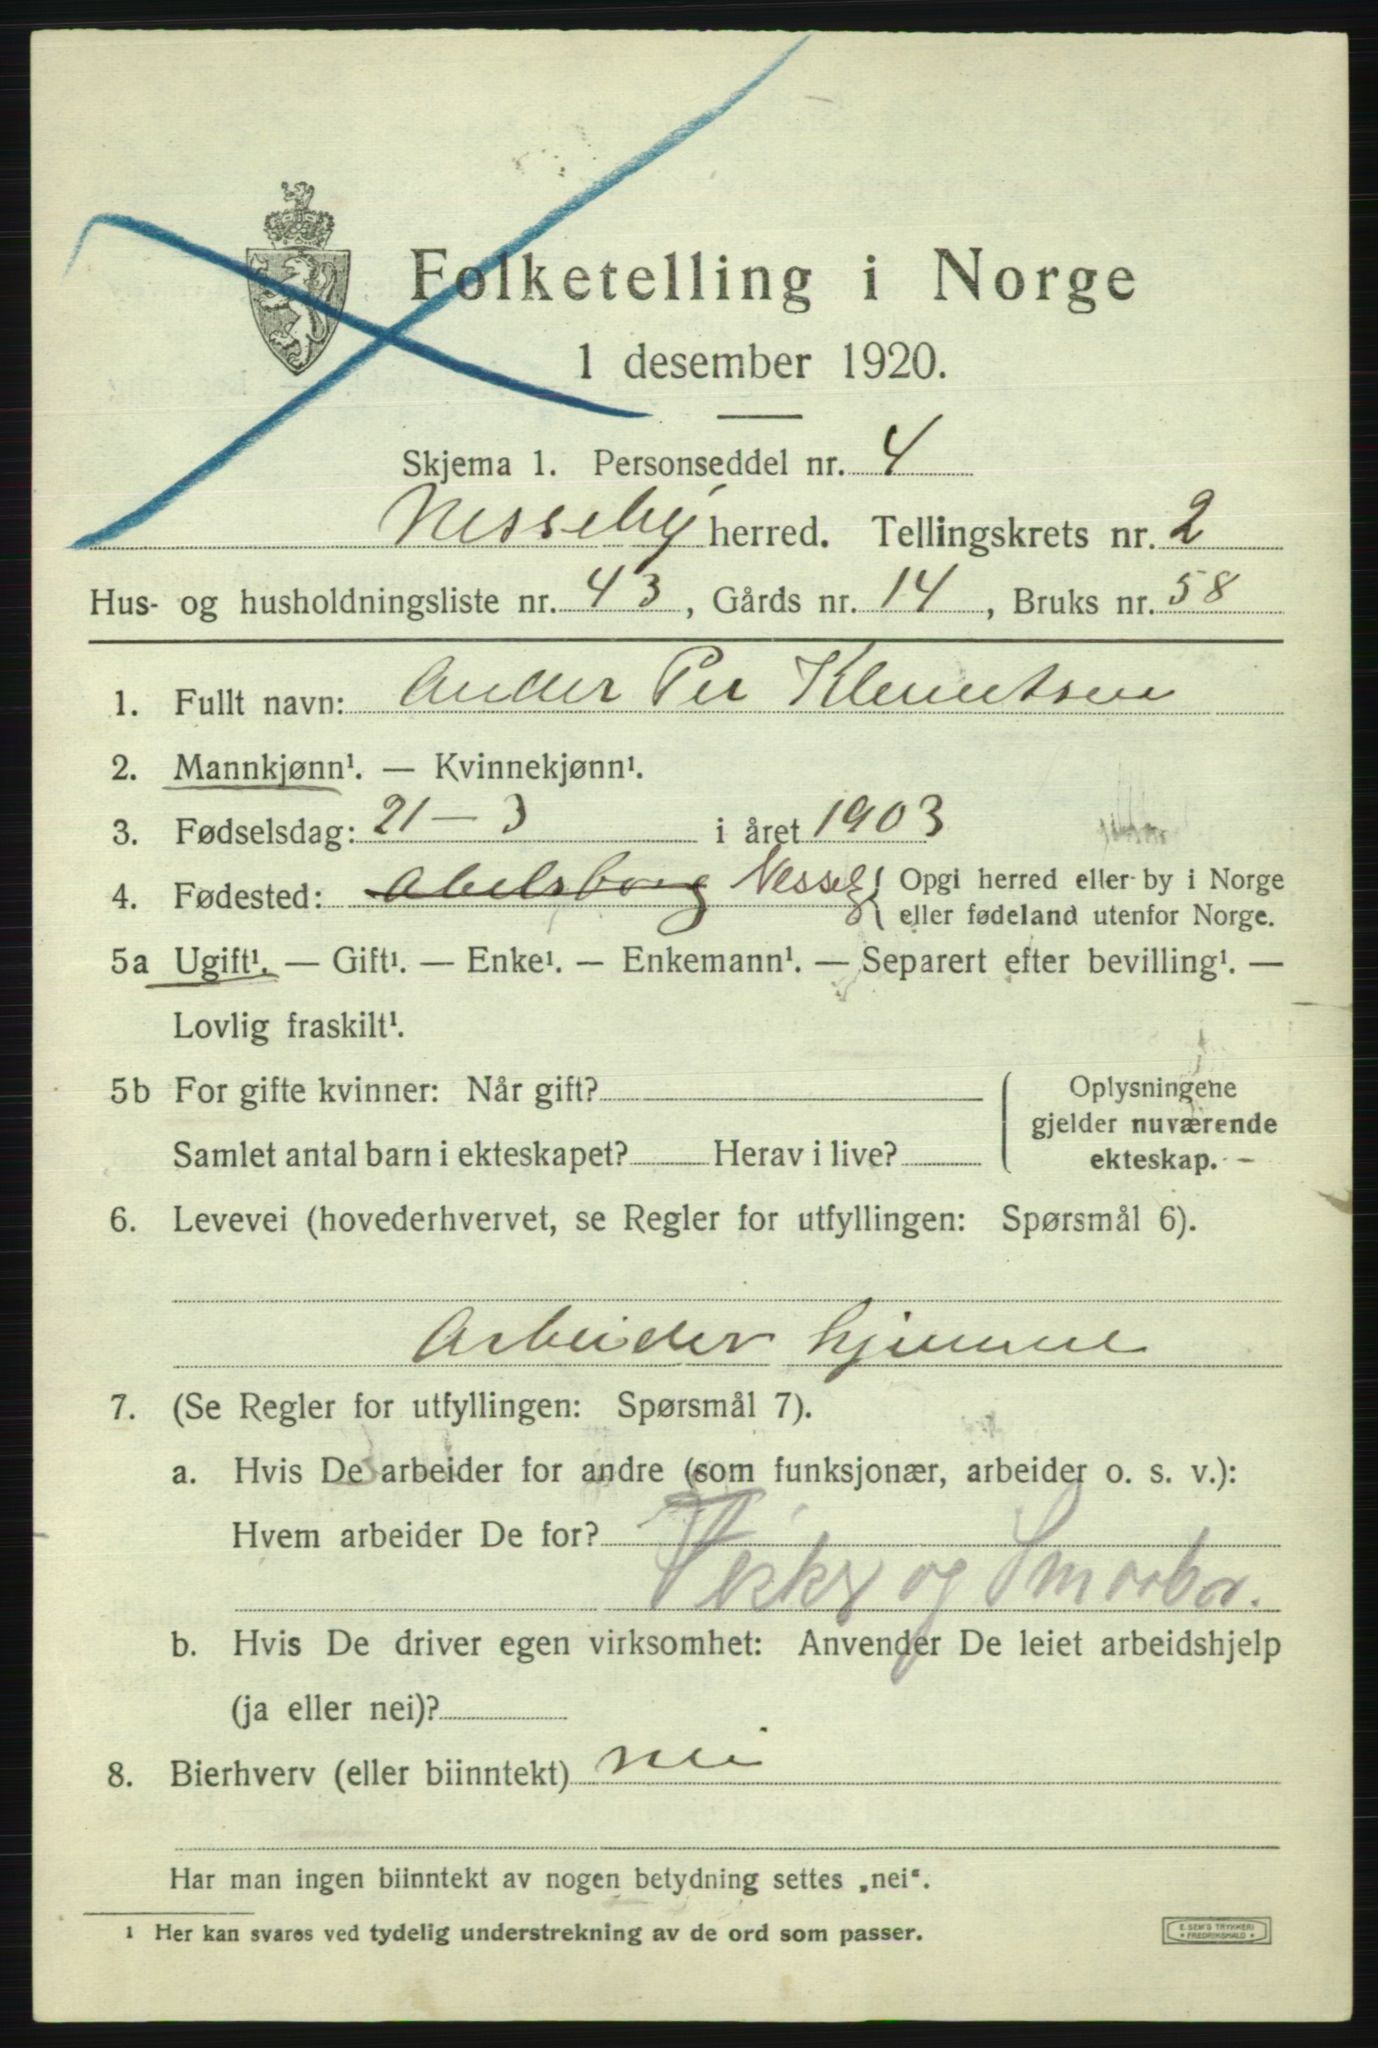 Folketelling i Norge
1 desember 1920.
Skjema 1. Personseddel nr. 4
Nesseby herred. Tellingskrets nr. 2
Hus- og husholdningsliste nr. 43, Gårds nr. 14, Bruks nr. 58
1. Fullt navn: Ander Per Klemetsen
2. Mannkjønn¹. — Kvinnekjønn¹.
3. Fødselsdag: 21 — 3 i året 1903
4. Fødested: Abelsborg Nesseb { Opgi herred eller by i Norge
eller fødeland utenfor Norge.
5a Ugift¹. — Gift¹. — Enke¹. — Enkemann¹. — Separert efter bevilling¹. —
Lovlig fraskilt¹.
5b For gifte kvinner: Når gift?
Samlet antal barn i ekteskapet? Herav i live?
Oplysningene
gjelder nuværende
ekteskap.
6. Levevei (hovederhvervet, se Regler for utfyllingen: Spørsmål 6).
Arbeider hjemme
7. (Se Regler for utfyllingen: Spørsmål 7).
a. Hvis De arbeider for andre (som funksjonær, arbeider o. s. v.):
Hvem arbeider De for?
og Smaabr.
b. Hvis De driver egen virksomhet: Anvender De leiet arbeidshjelp
(ja eller nei)?
8. Bierhverv (eller biinntekt) nei
Har man ingen biinntekt av nogen betydning settes „nei“.
1 Her kan svares ved tydelig understrekning av de ord som passer.
E. SEM'S TRYKKERI
★ FREDRIKSHALD ★